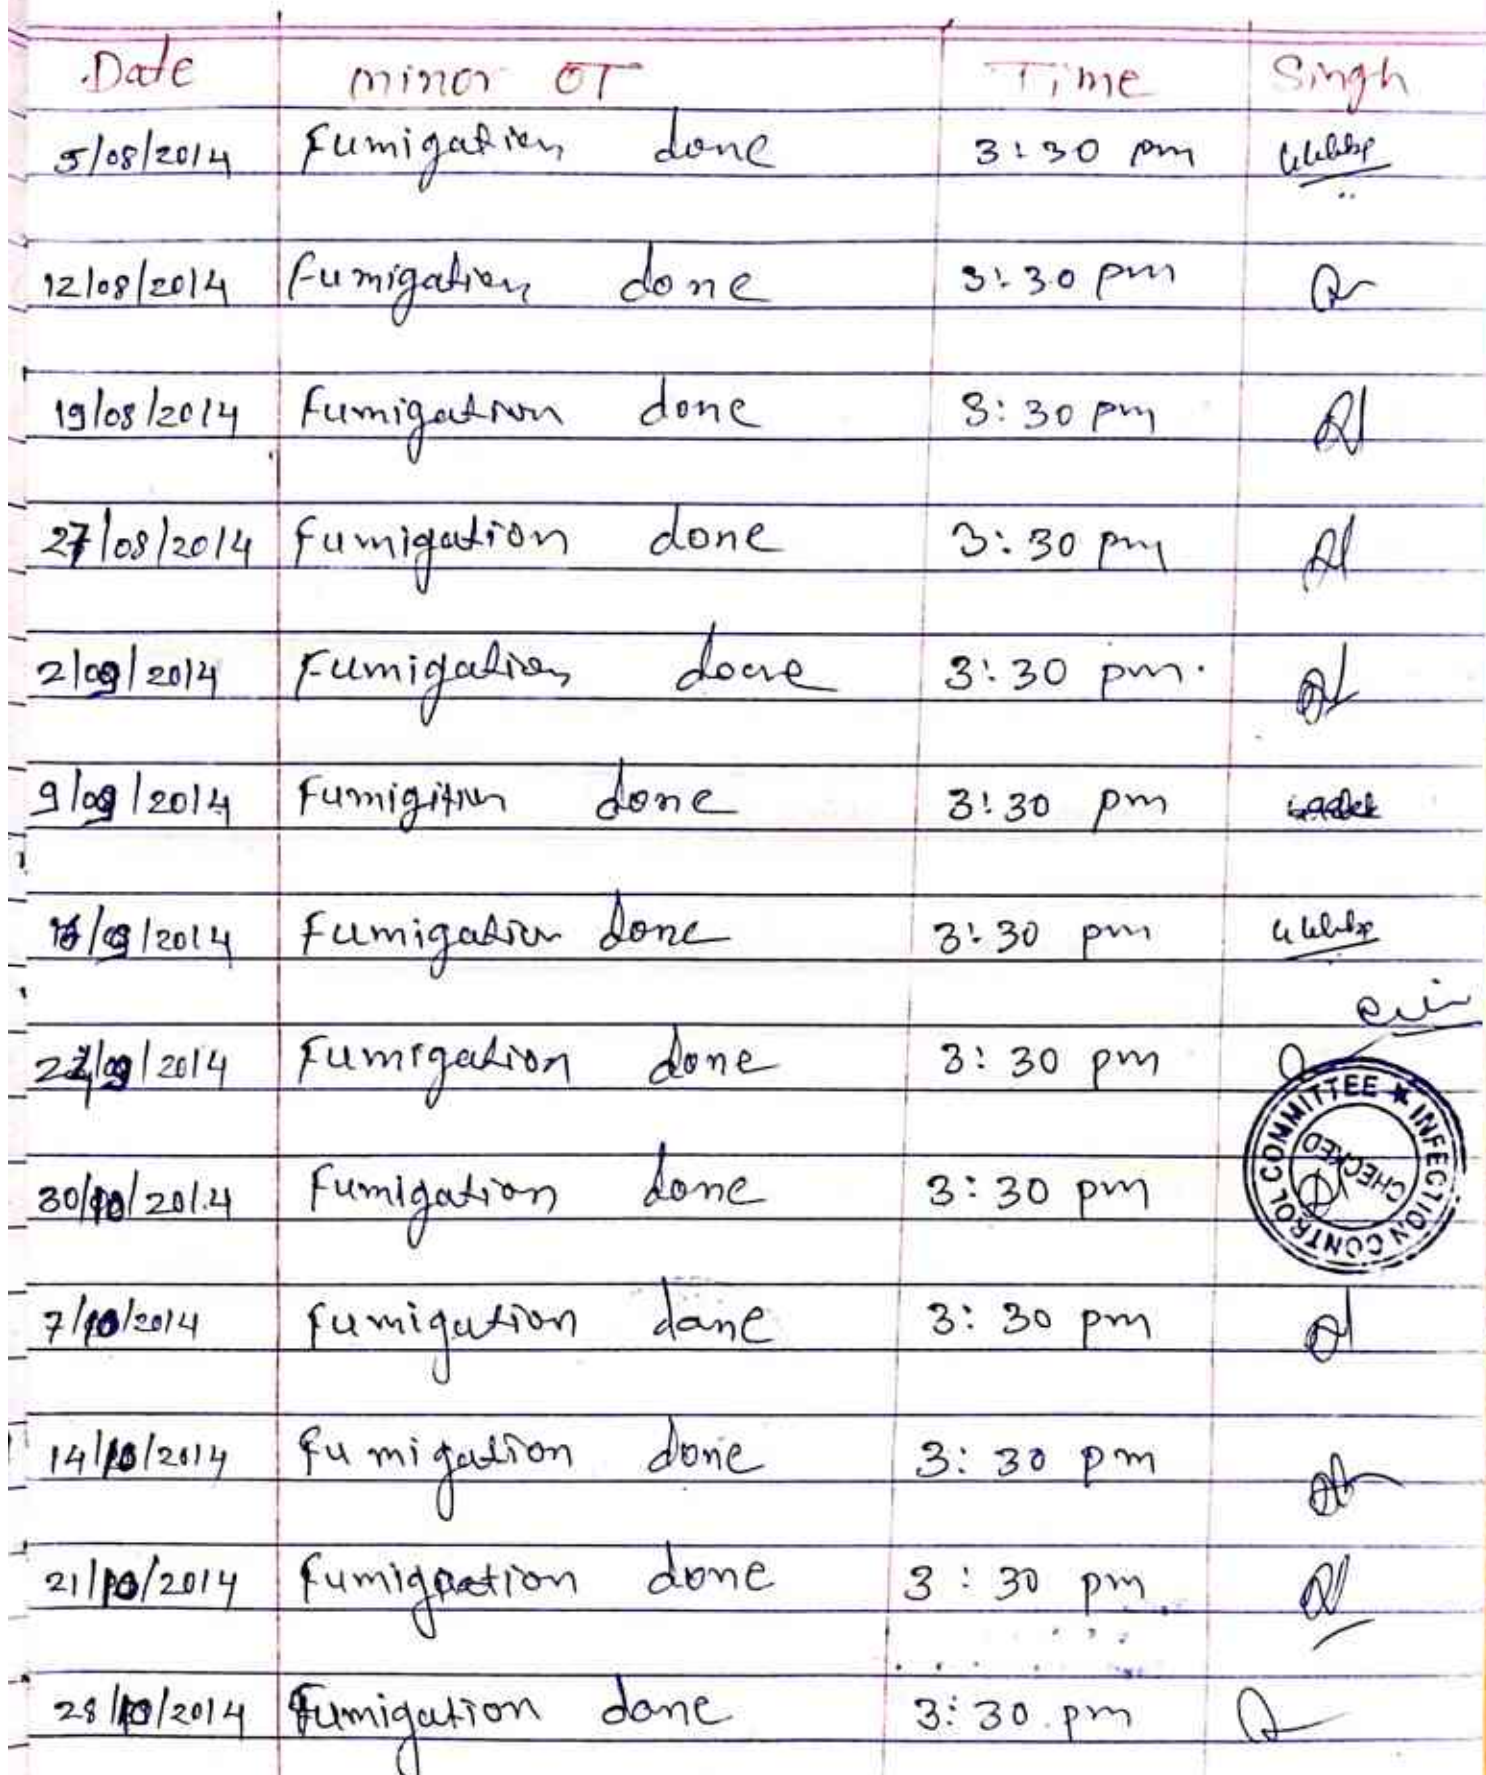 Date minor OT Time Singh
5/08/2014 Fumigation done 3:30 pm
12/08/2014 Fumigation done 3:30 pm
19/08/2014 Fumigation done 3:30 pm
27/08/2014 Fumigation done 3:30 pm
2/09/2014 Fumigation done 3:30 pm.
9/09/2014 Fumigition done 3:30 pm
/09/2014 Fumigation done 3:30 pm
/09/2014 Fumigation done 3:30 pm
INFECTION CONTROL COMMITTEE ★
CHECKED
30/10/2014 Fumigation done 3:30 pm
7/10/2014 Fumigation done 3:30 pm
14/10/2014 Fumigation done 3:30 pm
21/10/2014 Fumigation done 3:30 pm
28/10/2014 Fumigation done 3:30 pm